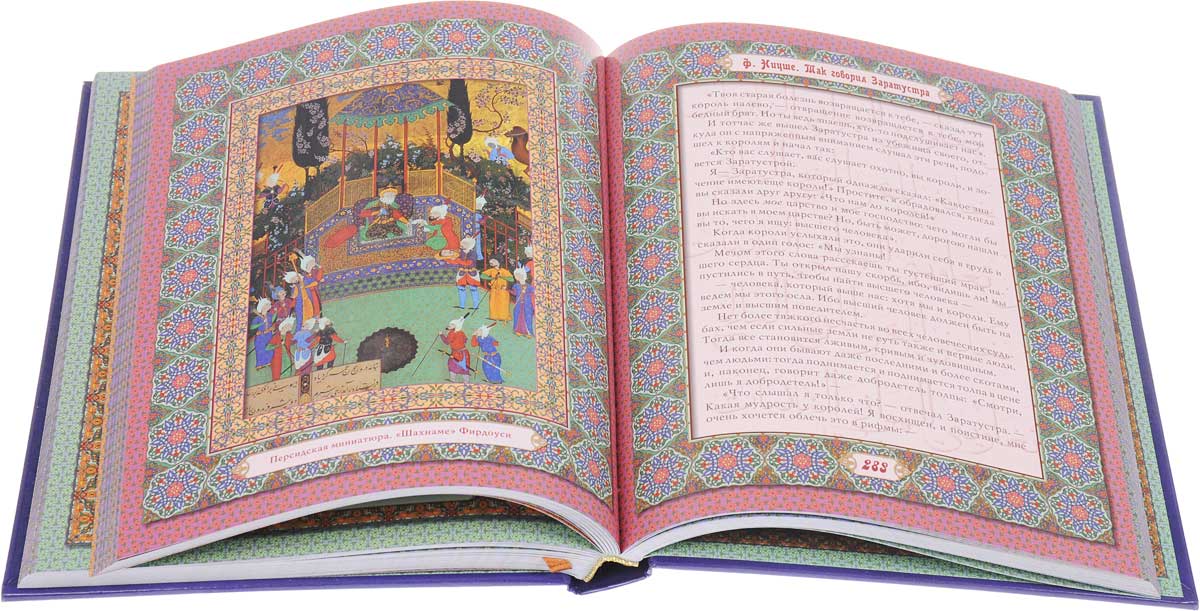 Персидская миниатюра. «Шахнаме» Фирдоуси
Ф. Ницше. Так говорил Заратустра
«Твоя старая болезнь возвращается к тебе, — сказал тут
король налево, — отвращение возвращается к тебе, мой
бедный брат. Но ты ведь знаешь, кто-то подслушивает нас».
И тотчас же вышел Заратустра из убежища своего, от-
куда он с напряженным вниманием слушал эти речи, подо-
шел к королям и начал так:
«Кто вас слушает, вас слушает охотно, вы, короли, и зо-
вется Заратустрой.
Я — Заратустра, который однажды сказал: «Какое зна-
чение имеют еще короли!» Простите, я обрадовался, когда
вы сказали друг другу: «Что нам до королей!»
Но здесь мое царство и мое господство: чего могли бы
вы искать в моем царстве? Но, быть может, дорогою нашли
вы то, чего я ищу: высшего человека».
Когда короли услыхали это, они ударили себя в грудь и
сказали в один голос: «Мы узнаны!
Мечом этого слова рассекаешь ты густейший мрак на-
шего сердца. Ты открыл нашу скорбь, ибо, видишь ли! мы
пустились в путь, чтобы найти высшего человека —
— человека, который выше нас: хотя мы и короли. Ему
ведем мы этого осла. Ибо высший человек должен быть на
земле и высшим повелителем.
Нет более тяжкого несчастья во всех человеческих судь-
бах, чем если сильные земли не суть также и первые люди.
Тогда все становится лживым, кривым и чудовищным.
И когда они бывают даже последними и более скотами,
чем людьми: тогда поднимается и поднимается толпа в цене
и, наконец, говорит даже добродетель толпы: «Смотри,
лишь я добродетель!» —
«Что слышал я только что? — отвечал Заратустра. —
Какая мудрость у королей! Я восхищен, и поистине, мне
очень хочется облечь это в рифмы: —
283